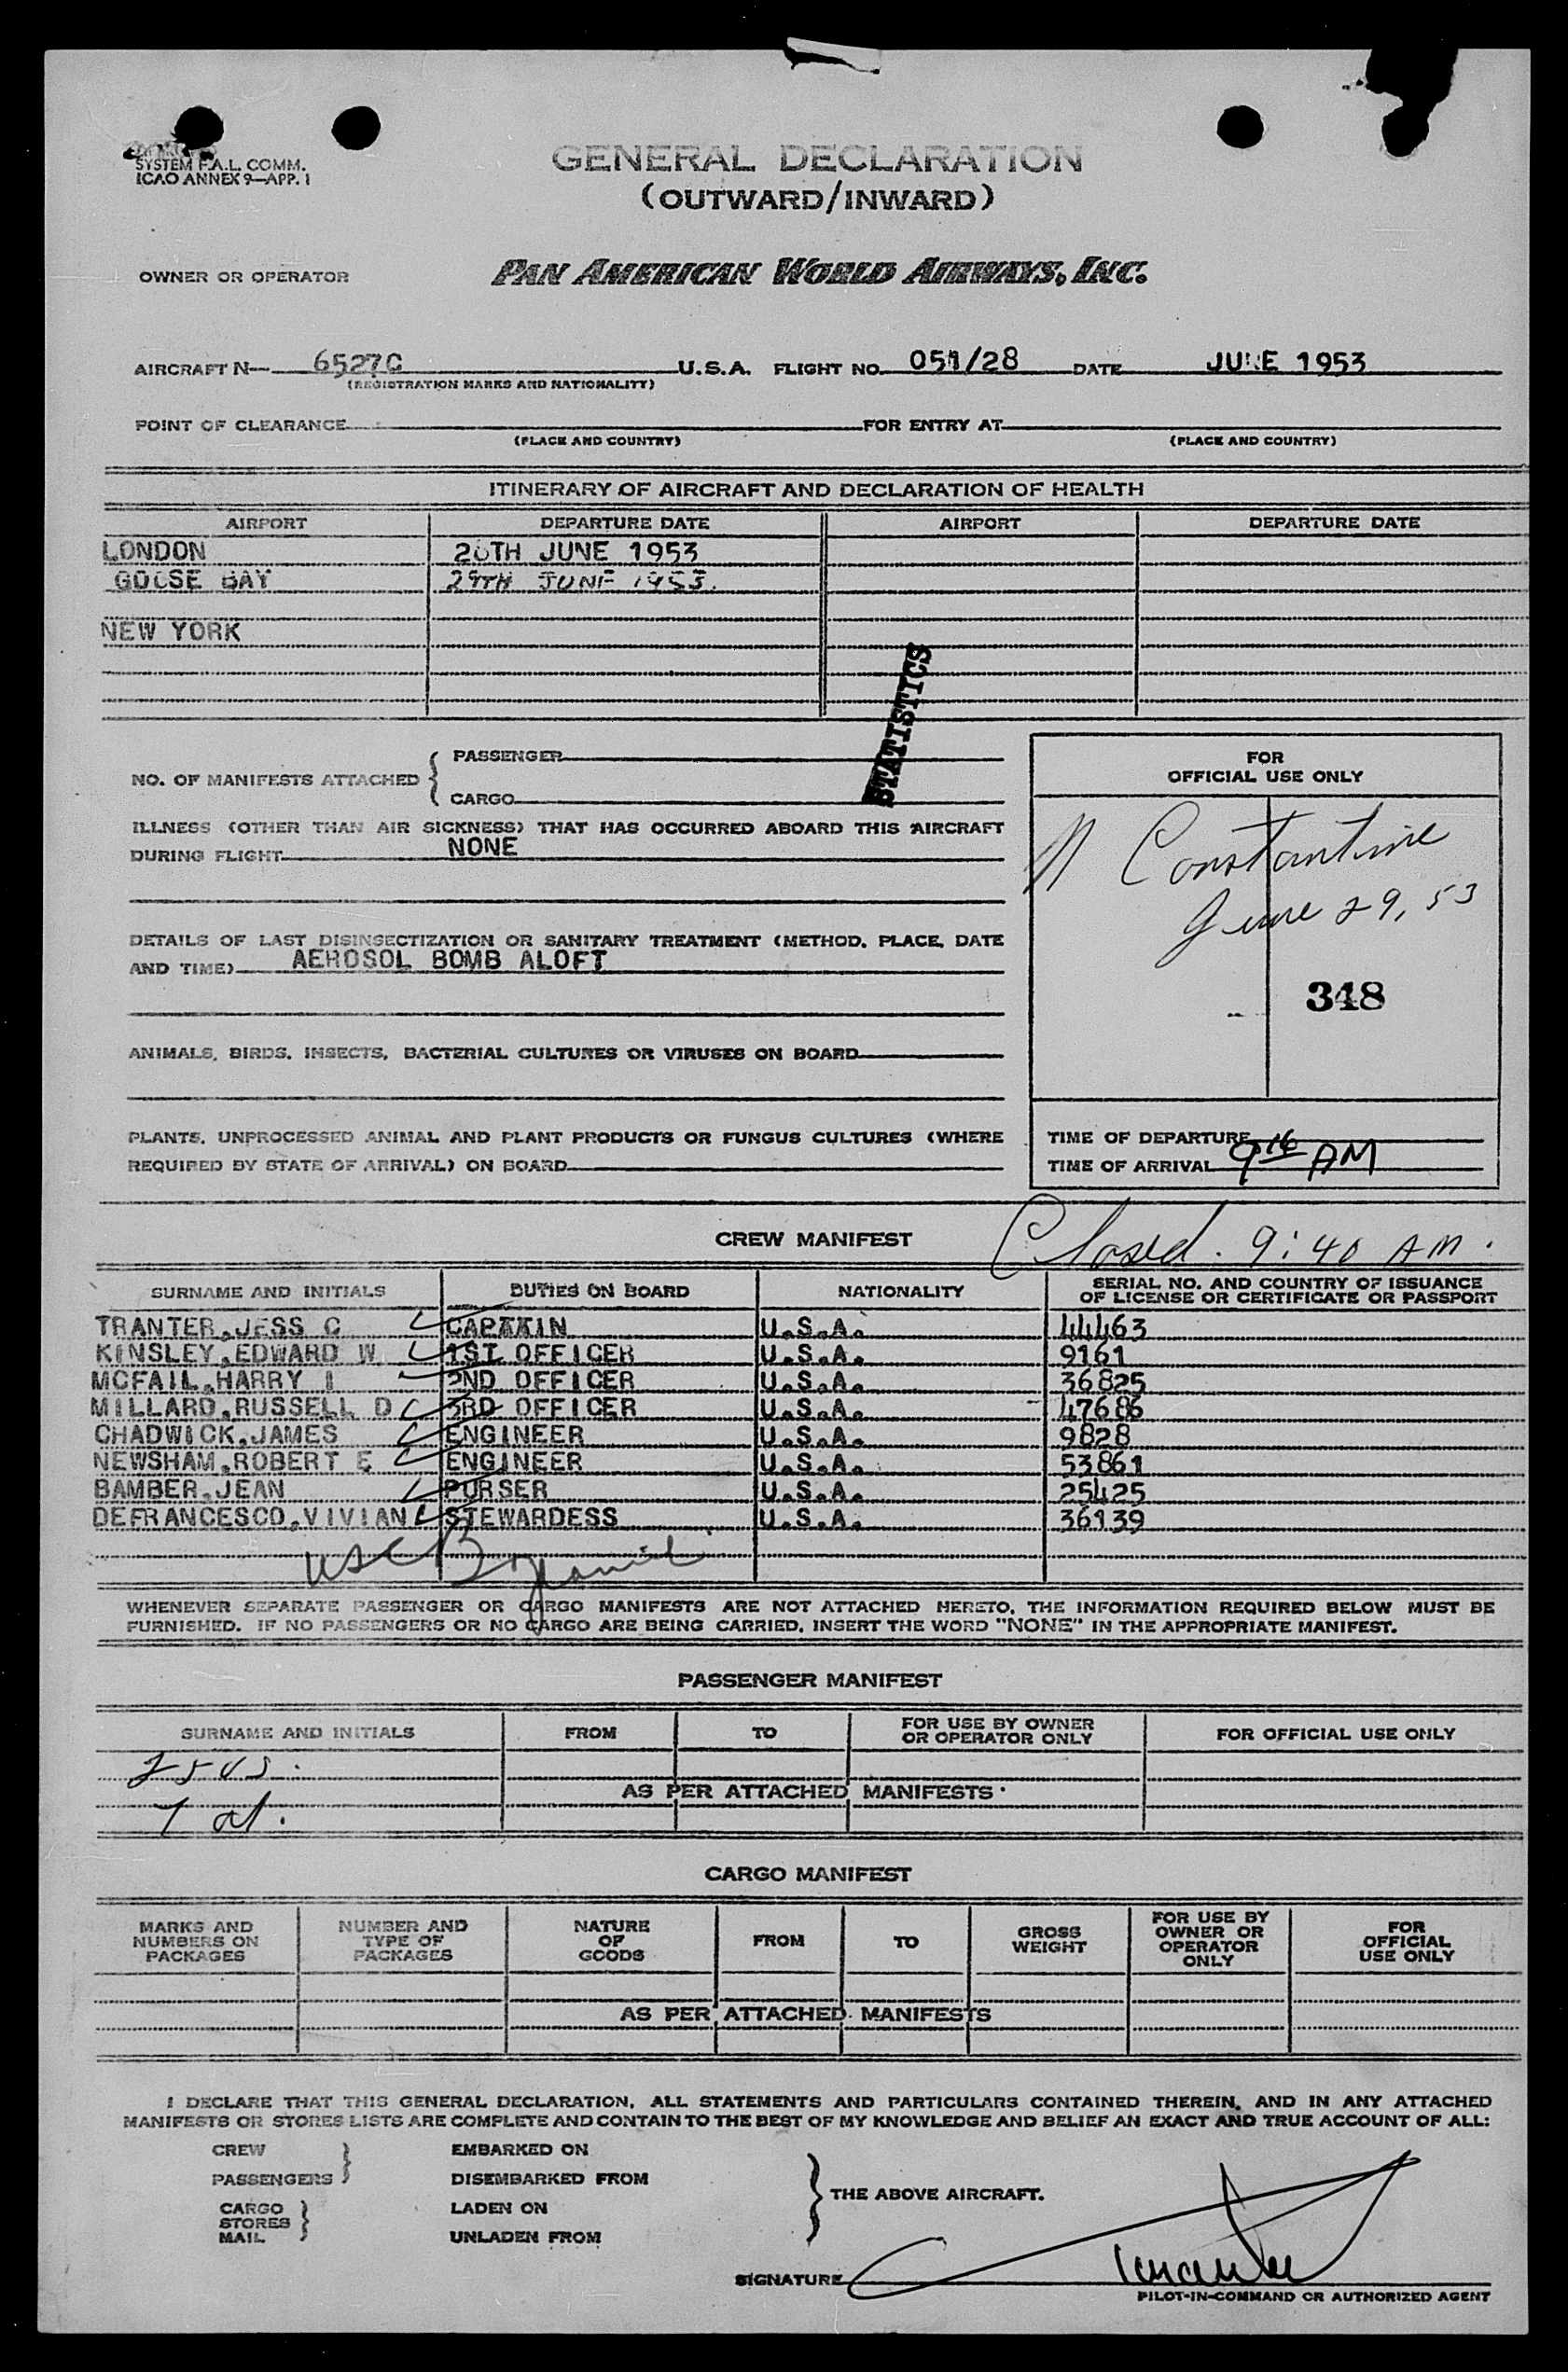 SYSTEM F.A.L. COMM.
ICAO ANNEX 9—APP. 1
GENERAL DECLARATION
(OUTWARD/INWARD)
OWNER OR OPERATOR PAN AMERICAN WORLD AIRWAYS, INC.
AIRCRAFT N— 6527C U.S.A. FLIGHT NO. 051/28 DATE JUNE 1953
(REGISTRATION MARKS AND NATIONALITY)
POINT OF CLEARANCE FOR ENTRY AT
(PLACE AND COUNTRY) (PLACE AND COUNTRY)
ITINERARY OF AIRCRAFT AND DECLARATION OF HEALTH
AIRPORT DEPARTURE DATE AIRPORT DEPARTURE DATE
LONDON JUNE 1953
GOOSE BAY 29TH JUNE 1953.
NEW YORK
STATISTICS
NO. OF MANIFESTS ATTACHED { PASSENGER
CARGO
ILLNESS (OTHER THAN AIR SICKNESS) THAT HAS OCCURRED ABOARD THIS AIRCRAFT
DURING FLIGHT NONE
DETAILS OF LAST DISINSECTIZATION OR SANITARY TREATMENT (METHOD, PLACE, DATE
AND TIME) AEROSOL BOMB ALOFT
ANIMALS, BIRDS, INSECTS, BACTERIAL CULTURES OR VIRUSES ON BOARD
PLANTS, UNPROCESSED ANIMAL AND PLANT PRODUCTS OR FUNGUS CULTURES (WHERE
REQUIRED BY STATE OF ARRIVAL) ON BOARD
FOR
OFFICIAL USE ONLY
Constantine
June 29, 53
348
TIME OF DEPARTURE
TIME OF ARRIVAL 9 16 AM
CREW MANIFEST Closed. 9:40 AM.
SURNAME AND INITIALS DUTIES ON BOARD NATIONALITY SERIAL NO. AND COUNTRY OF ISSUANCE
OF LICENSE OR CERTIFICATE OR PASSPORT
TRANTER,JESS C CAPTAIN U.S.A. 44463
KINSLEY,EDWARD W 1ST OFFICER U.S.A. 9161
MCFAIL,HARRY I 2ND OFFICER U.S.A. 36825
MILLARD,RUSSELL D 3RD OFFICER U.S.A. 47686
CHADWICK,JAMES ENGINEER U.S.A. 9828
NEWSHAM,ROBERT E ENGINEER U.S.A. 53861
BAMBER,JEAN PURSER U.S.A. 25425
DEFRANCESCO,VIVIAN STEWARDESS U.S.A. 36139
WHENEVER SEPARATE PASSENGER OR CARGO MANIFESTS ARE NOT ATTACHED HERETO, THE INFORMATION REQUIRED BELOW MUST BE
FURNISHED. IF NO PASSENGERS OR NO CARGO ARE BEING CARRIED, INSERT THE WORD "NONE" IN THE APPROPRIATE MANIFEST.
PASSENGER MANIFEST
SURNAME AND INITIALS FROM TO FOR USE BY OWNER
OR OPERATOR ONLY FOR OFFICIAL USE ONLY
AS PER ATTACHED MANIFESTS
CARGO MANIFEST
MARKS AND
NUMBERS ON
PACKAGES
NUMBER AND
TYPE OF
PACKAGES
NATURE
OF
GOODS
FROM
TO
GROSS
WEIGHT
FOR USE BY
OWNER OR
OPERATOR
ONLY
FOR
OFFICIAL
USE ONLY
AS PER ATTACHED MANIFESTS
I DECLARE THAT THIS GENERAL DECLARATION, ALL STATEMENTS AND PARTICULARS CONTAINED THEREIN, AND IN ANY ATTACHED
MANIFESTS OR STORES LISTS ARE COMPLETE AND CONTAIN TO THE BEST OF MY KNOWLEDGE AND BELIEF AN EXACT AND TRUE ACCOUNT OF ALL:
CREW EMBARKED ON
PASSENGERS DISEMBARKED FROM
THE ABOVE AIRCRAFT.
CARGO LADEN ON
STORES
MAIL UNLADEN FROM
SIGNATURE Tranter
PILOT-IN-COMMAND OR AUTHORIZED AGENT